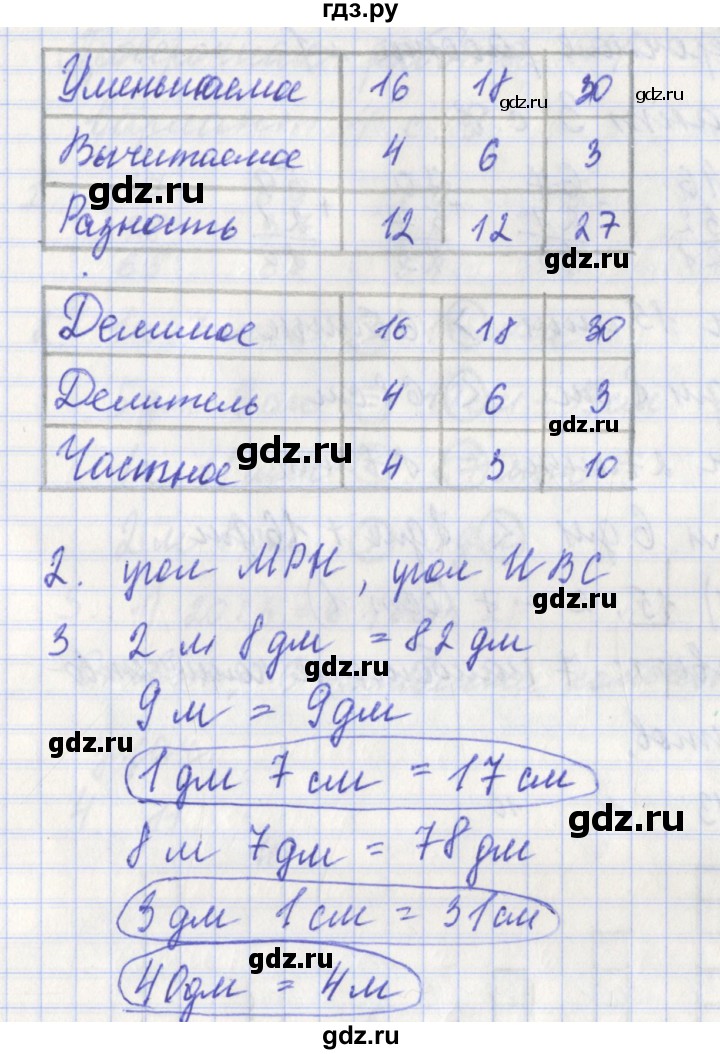 гдз.ру
Уменьшаемое 16 18 30
gdz.ru gdz.ru
Вычитаемое 4 6 3
gdz.ru
Разность 12 12 27
gdz.ru
Делимое 16 18 30
Делитель 4 6 3
gdz.ru
Частное 4 3 10
gdz.ru
2. угол МРН, угол НВС
gdz.ru
3 2 м 8 дм = 82 дм
gdz.ru
9 м = 9 дм
gdz.ru
1 дм 7 см = 17 см
gdz.ru
8 м 7 дм = 78 дм
3 дм 1 см = 31 см
gdz.ru
40 дм = 4 м
gdz.ru